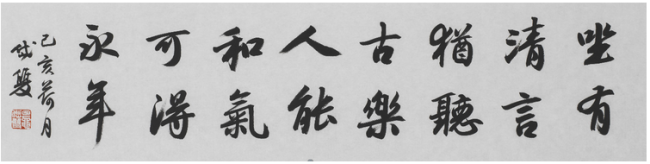 坐有
清言
猶聽
古樂
人能
和氣
可得
永年
己亥荷月